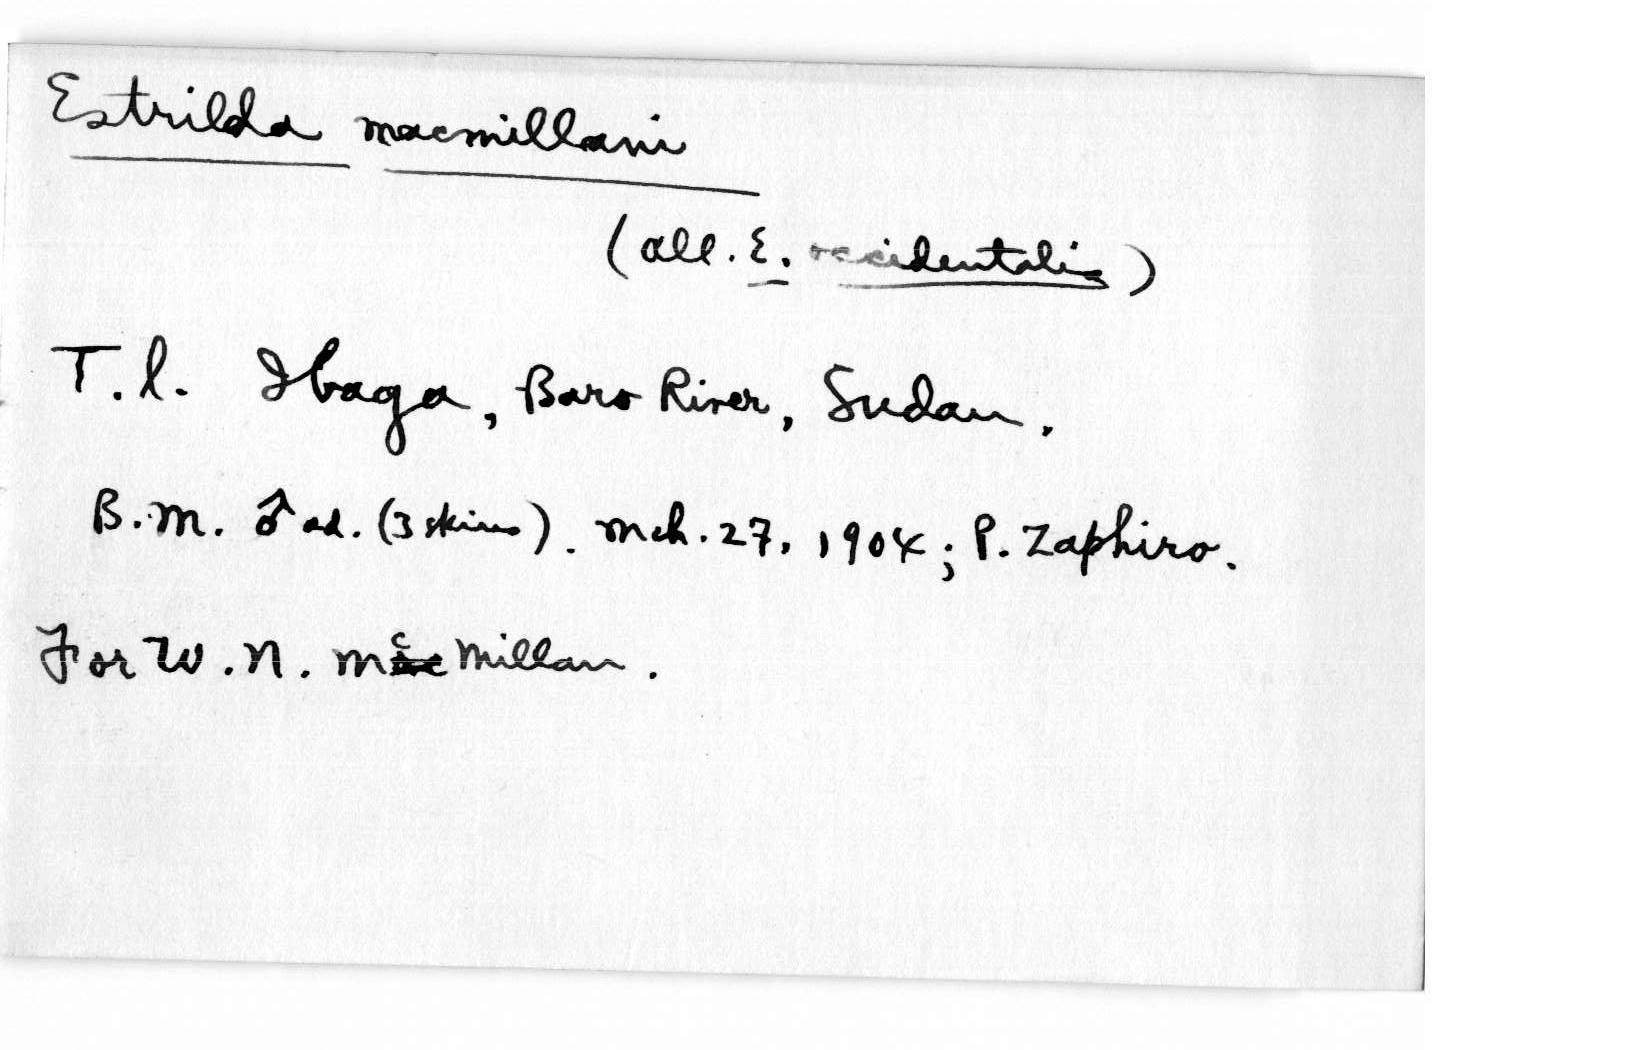 Estrilda macmillani
(all. E. occidentalis)
T.l. Ibaga, Baro River, Sudan.
B.M. ♂ ad. (3 skins). Mch. 27, 1904; P. Zaphiro.
For W.N. McMillan.